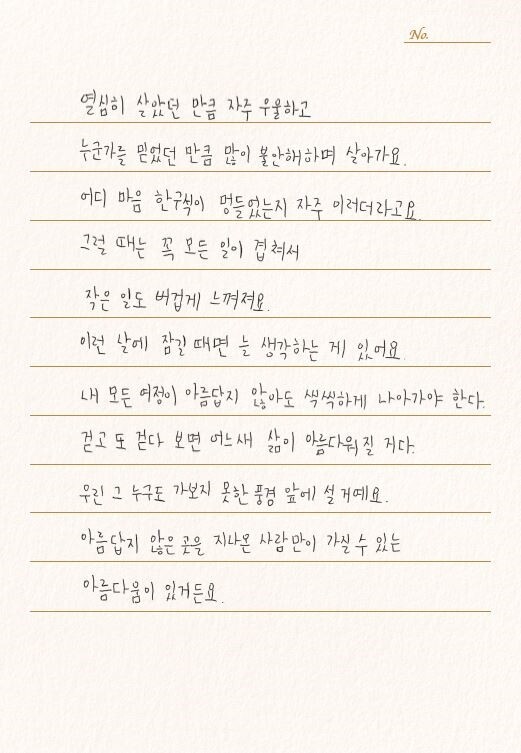 No.
열심히 살았던 만큼 자주 우울하고
누군가를 믿었던 만큼 많이 불안해하며 살아가요.
어디 마음 한구석이 멍들었는지 자주 이러더라고요.
그럴 때는 꼭 모든 일이 겹쳐서
작은 일도 버겁게 느껴져요.
이런 날에 잠길 때면 늘 생각하는 게 있어요.
내 모든 여정이 아름답지 않아도 씩씩하게 나아가야 한다.
걷고 또 걷다 보면 어느새 삶이 아름다워질 거다.
우린 그 누구도 가보지 못한 풍경 앞에 설 거예요.
아름답지 않은 곳을 지나온 사람만이 가질 수 있는
아름다움이 있거든요.